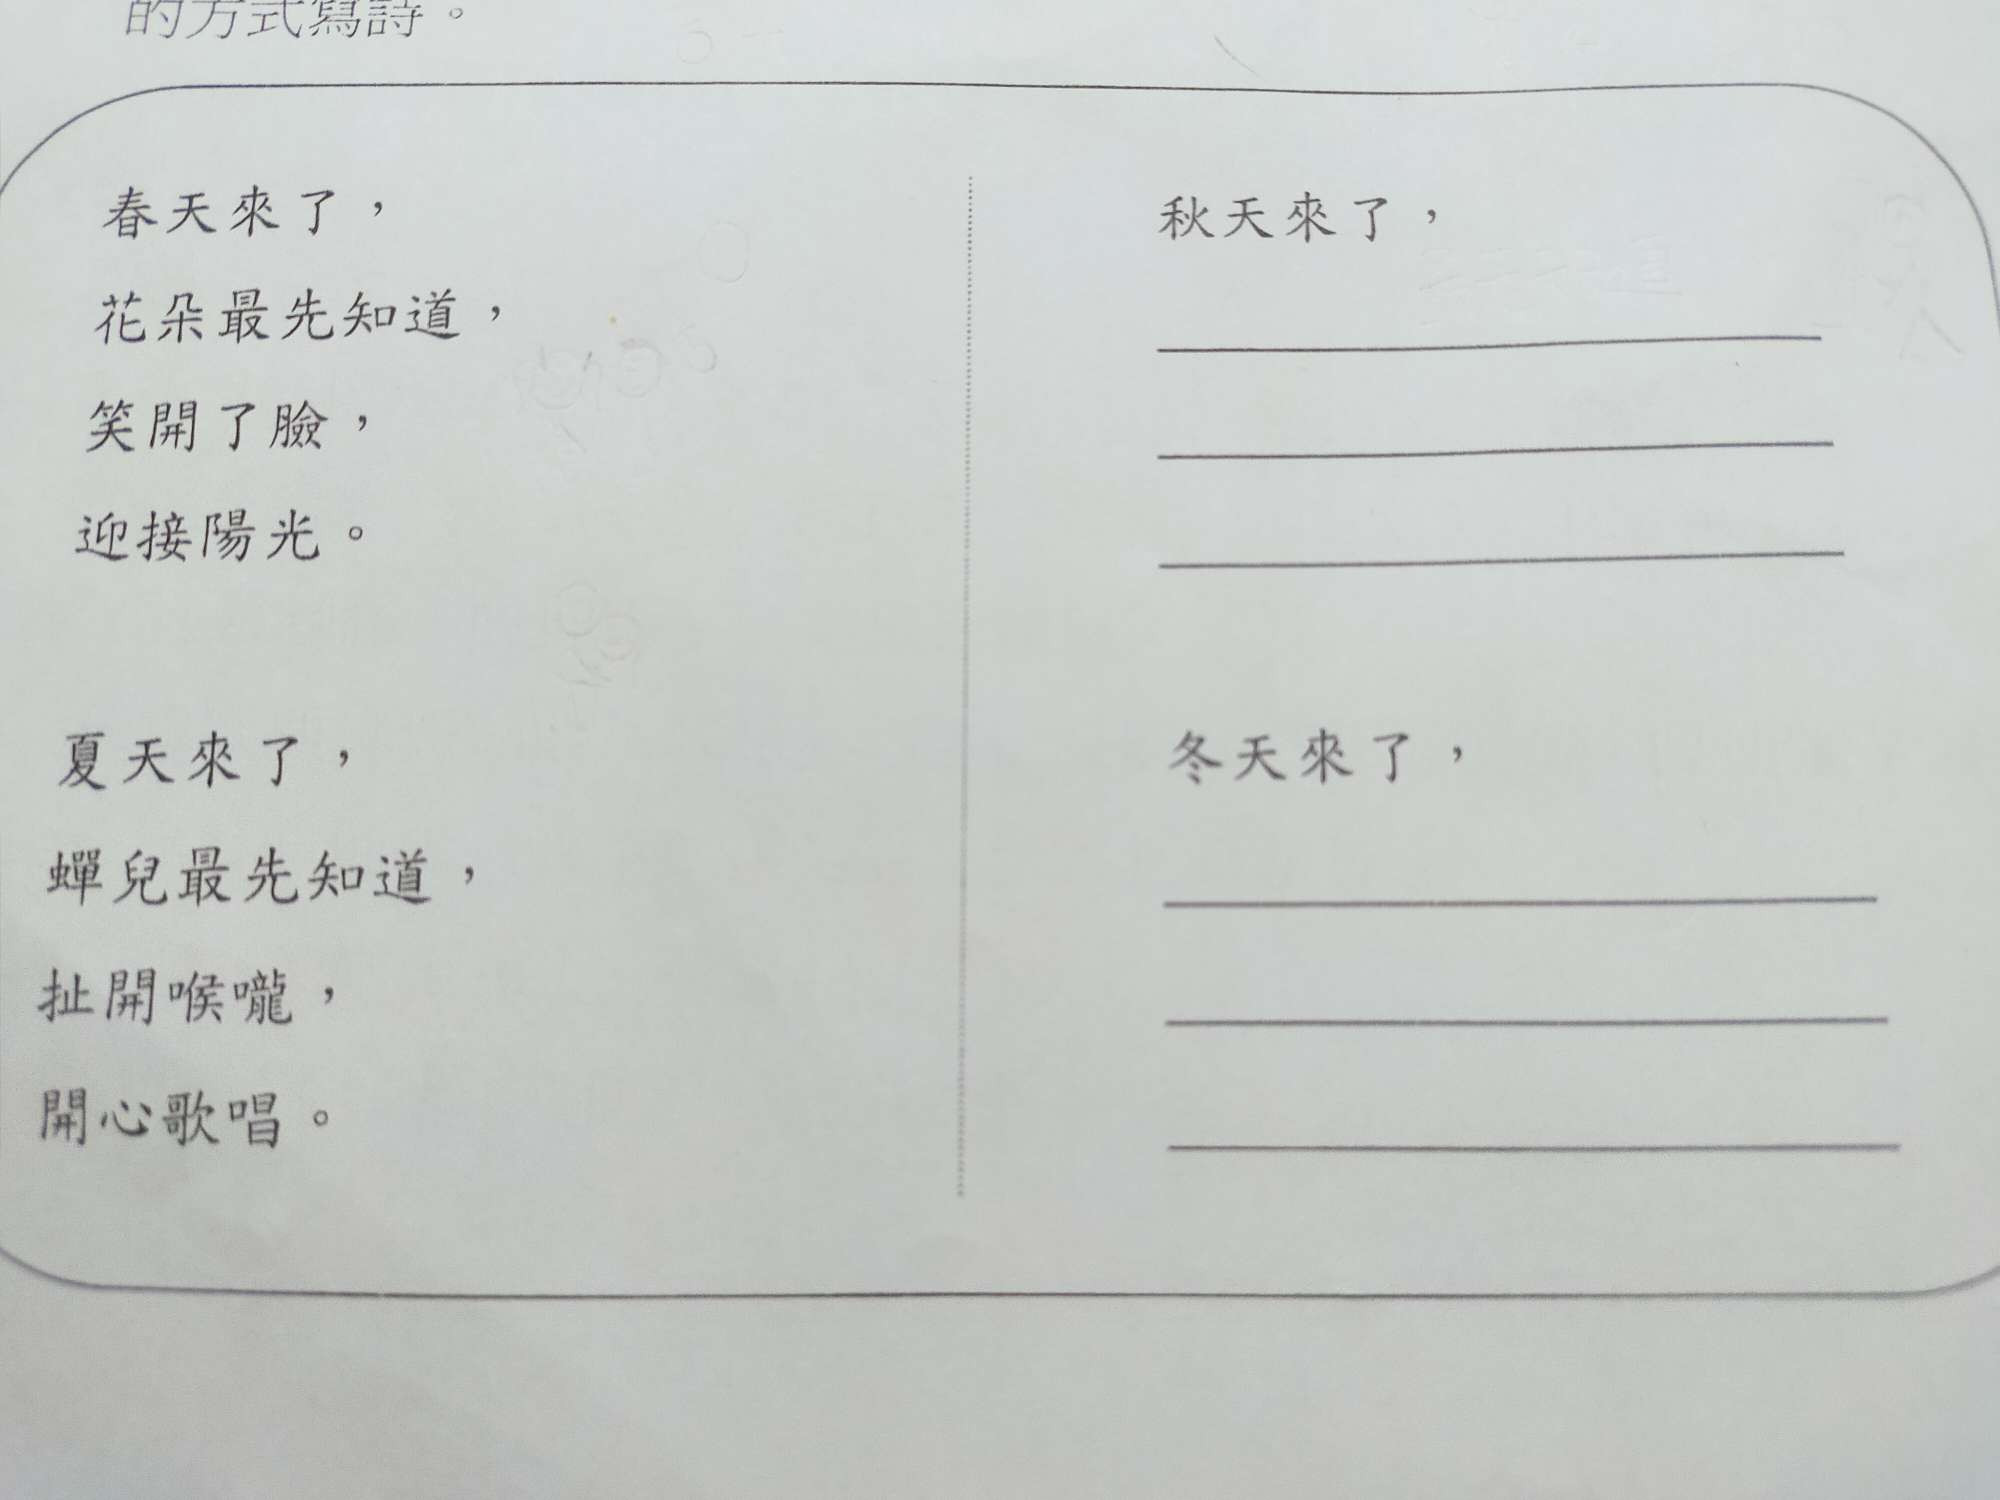 的方式寫詩。
春天來了，
花朵最先知道，
笑開了臉，
迎接陽光。
夏天來了，
蟬兒最先知道，
扯開喉嚨，
開心歌唱。
秋天來了，
冬天來了，